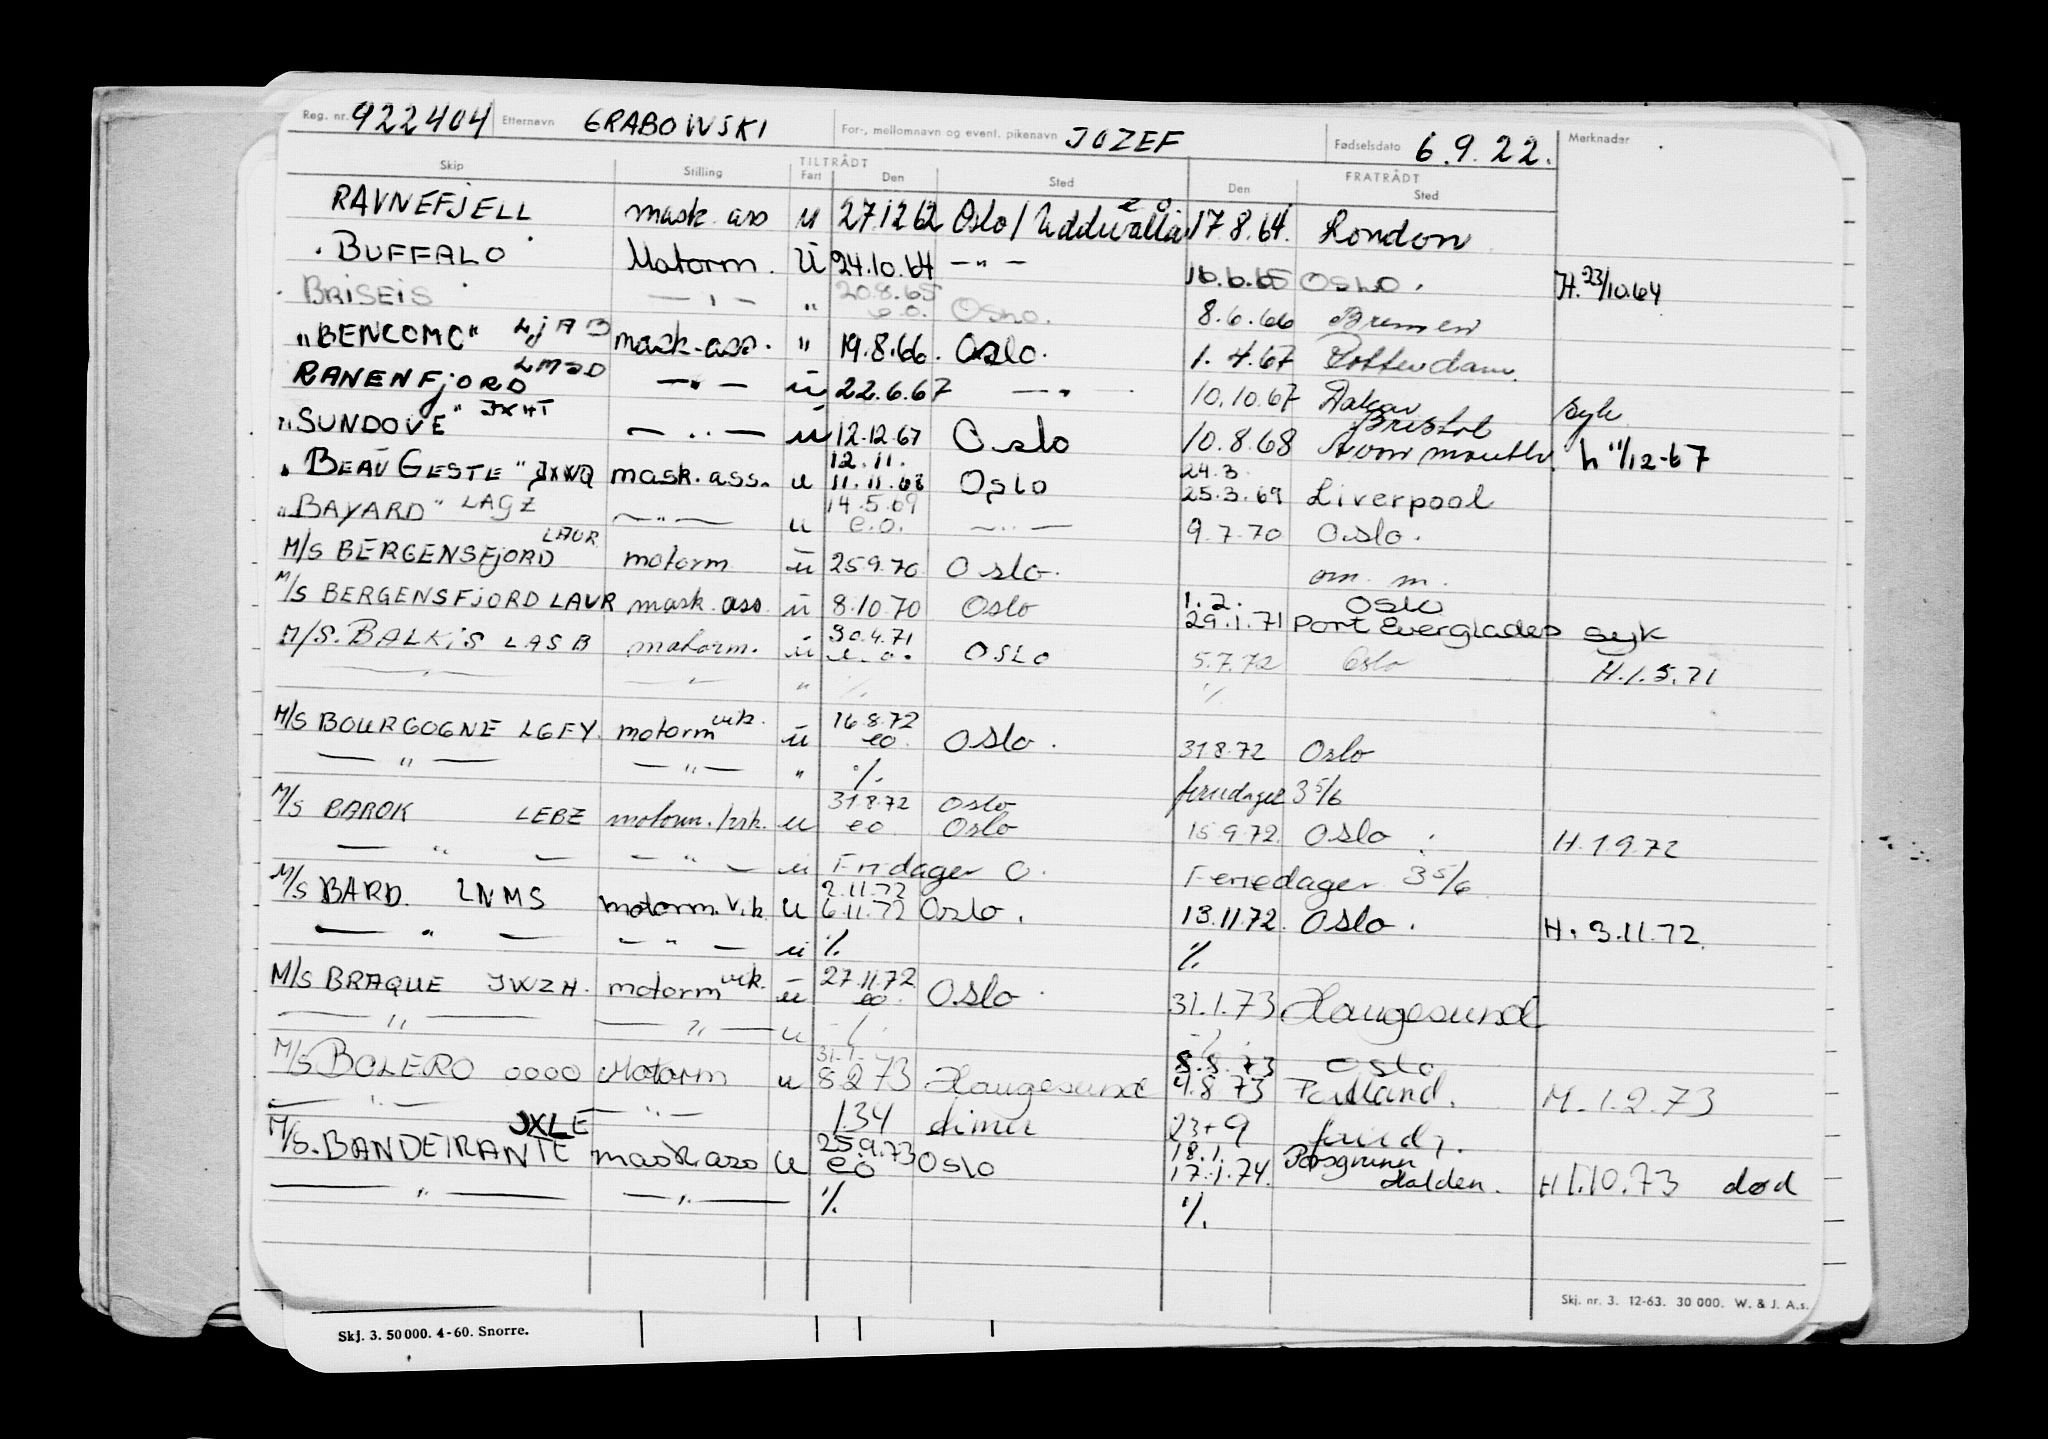 Reg. nr. 922404 Etternavn GRABOWSKI For-, mellomnavn og event. pikenavn JOZEF Fødselsdato 6.9.22. Merknader
TILTRÅDT FRATRÅDT
Skip Stilling Fart Den Sted Den Sted
RAVNEFJELL mask. ass u 27.12.62 Oslo / Uddevalla e.o. 17.8.64. London
BUFFALO Motorm. U 24.10.64 — " — 16.6.65 OSLO. H. 23/10.64
BRISEIS — " — " 20.8.65 e.o. OSLO. 8.6.66 Bremen
"BENCOMO" LJAB mask. ass. " 19.8.66. Oslo. 1.4.67 Rotterdam.
RANENFJORD LMSD — " — u 22.6.67 — " 10.10.67 Dakar syk
"SUNDOVE" JXHT — " — u 12.12.67 Oslo 10.8.68 Bristol Avonmouth. h 11/12-67
"BEAU GESTE" JXWQ mask. ass. u 12.11. 11.11.68 Oslo 24.3. 25.3.69 Liverpool
"BAYARD" LAGZ — " — u 14.5.69 e.o. — " — 9.7.70 Oslo.
M/S BERGENSFJORD LAUR motorm u 25.9.70 Oslo. om. m.
M/S BERGENSFJORD LAUR mask. ass. u 8.10.70 Oslo 1.2. 29.1.71 Oslo Port Everglades syk
M/S. BALKIS LASB motorm. u 30.4.71 e.o. OSLO 5.7.72 Oslo H.1.5.71
— " — — " — " %. %
M/S BOURGOGNE LGFY. motorm vik. u 16.8.72 eo. Oslo. 31.8.72 Oslo
— " — — " — " %. feriedager 3 5/6
M/S BAROK LEBZ motorm. / vik. u 31.8.72 eo. Oslo Oslo 15.9.72. Oslo. H. 1.9.72
— " — — " — u Fridager 0. Feriedager 3 5/6
M/S BARD. LNMS motorm. vik. u 2.11.72 6.11.72 Oslo. 13.11.72. Oslo. H. 3.11.72.
— " — — " — u %. %.
M/S BRAQUE JWZH. motorm vik. u 27.11.72 eo. Oslo 31.1.73 Haugesund
— " — — " — u %. %.
M/S BOLERO OOOO Motorm u 31.1. 8.2.73 Haugesund 8.8.73 4.8.73 Oslo Portland. M. 1.2.73
— " — — " — 134 timer 23+9
M/S. BANDEIRANTE JXLE mask. ass u 25.9.73 eo Oslo 18.1. 17.1.74. Porsgrunn Halden. H 1.10.73 død
— " — — " — %. %.
Skj. nr. 3. 12-63. 30 000. W. & J. A.s.
Skj. 3. 50 000. 4-60. Snorre.